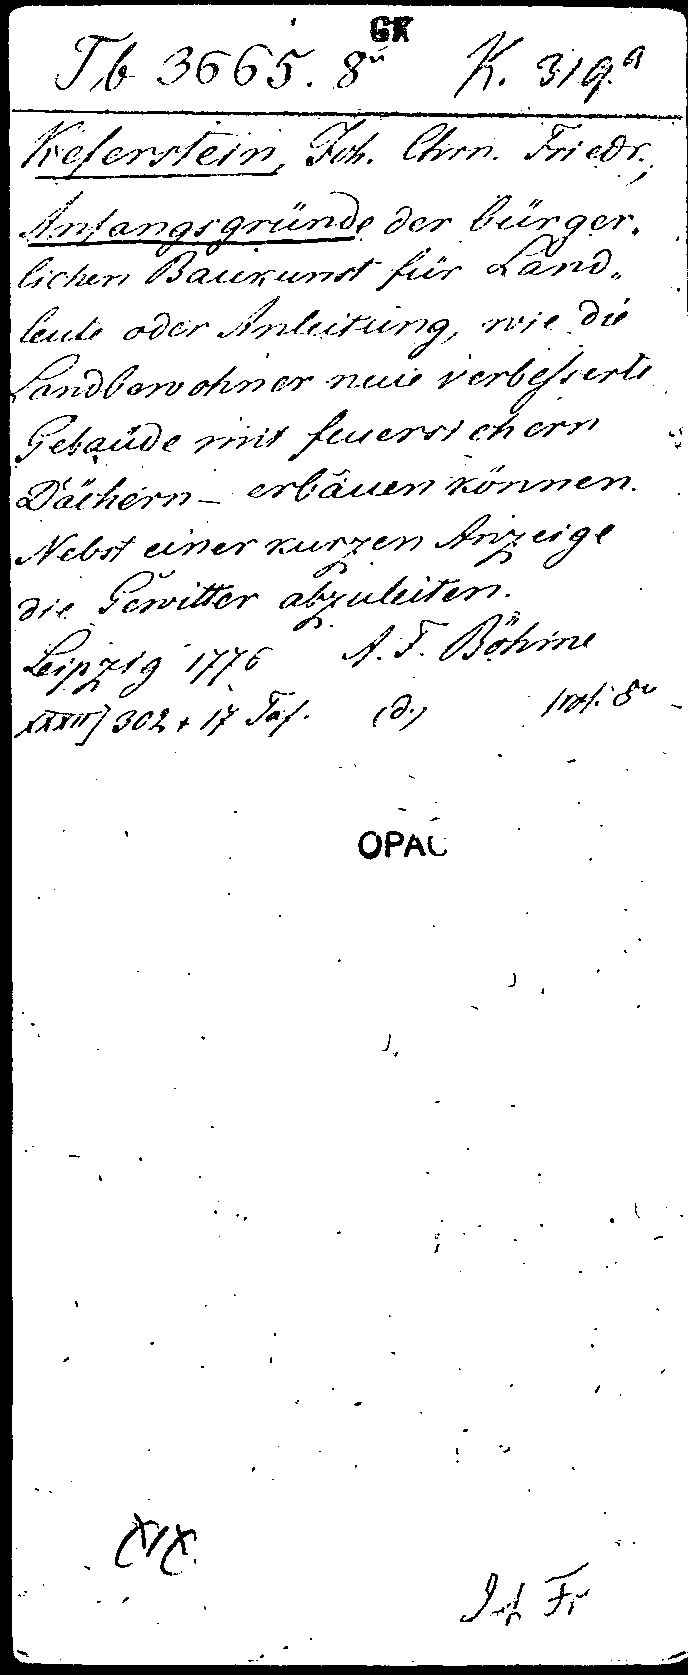 GK
Tb 3665. 8° K. 319.a
Keferstein, Joh. Chrn. Friedr.,
Anfangsgründe der bürger„
lichen Baukunst für Land„
leute oder Anleitung, wie die
Landbewohner neue verbesserte
Gebaüde mit feuersichern
Dächern – erbauen können.
Nebst einer kurzen Anzeige
die Gewitter abzuleiten.
Leipzig 1776 A. F. Böhme
302 + 17 Taf. (d.) 8°
OPAC
XIX
Fr